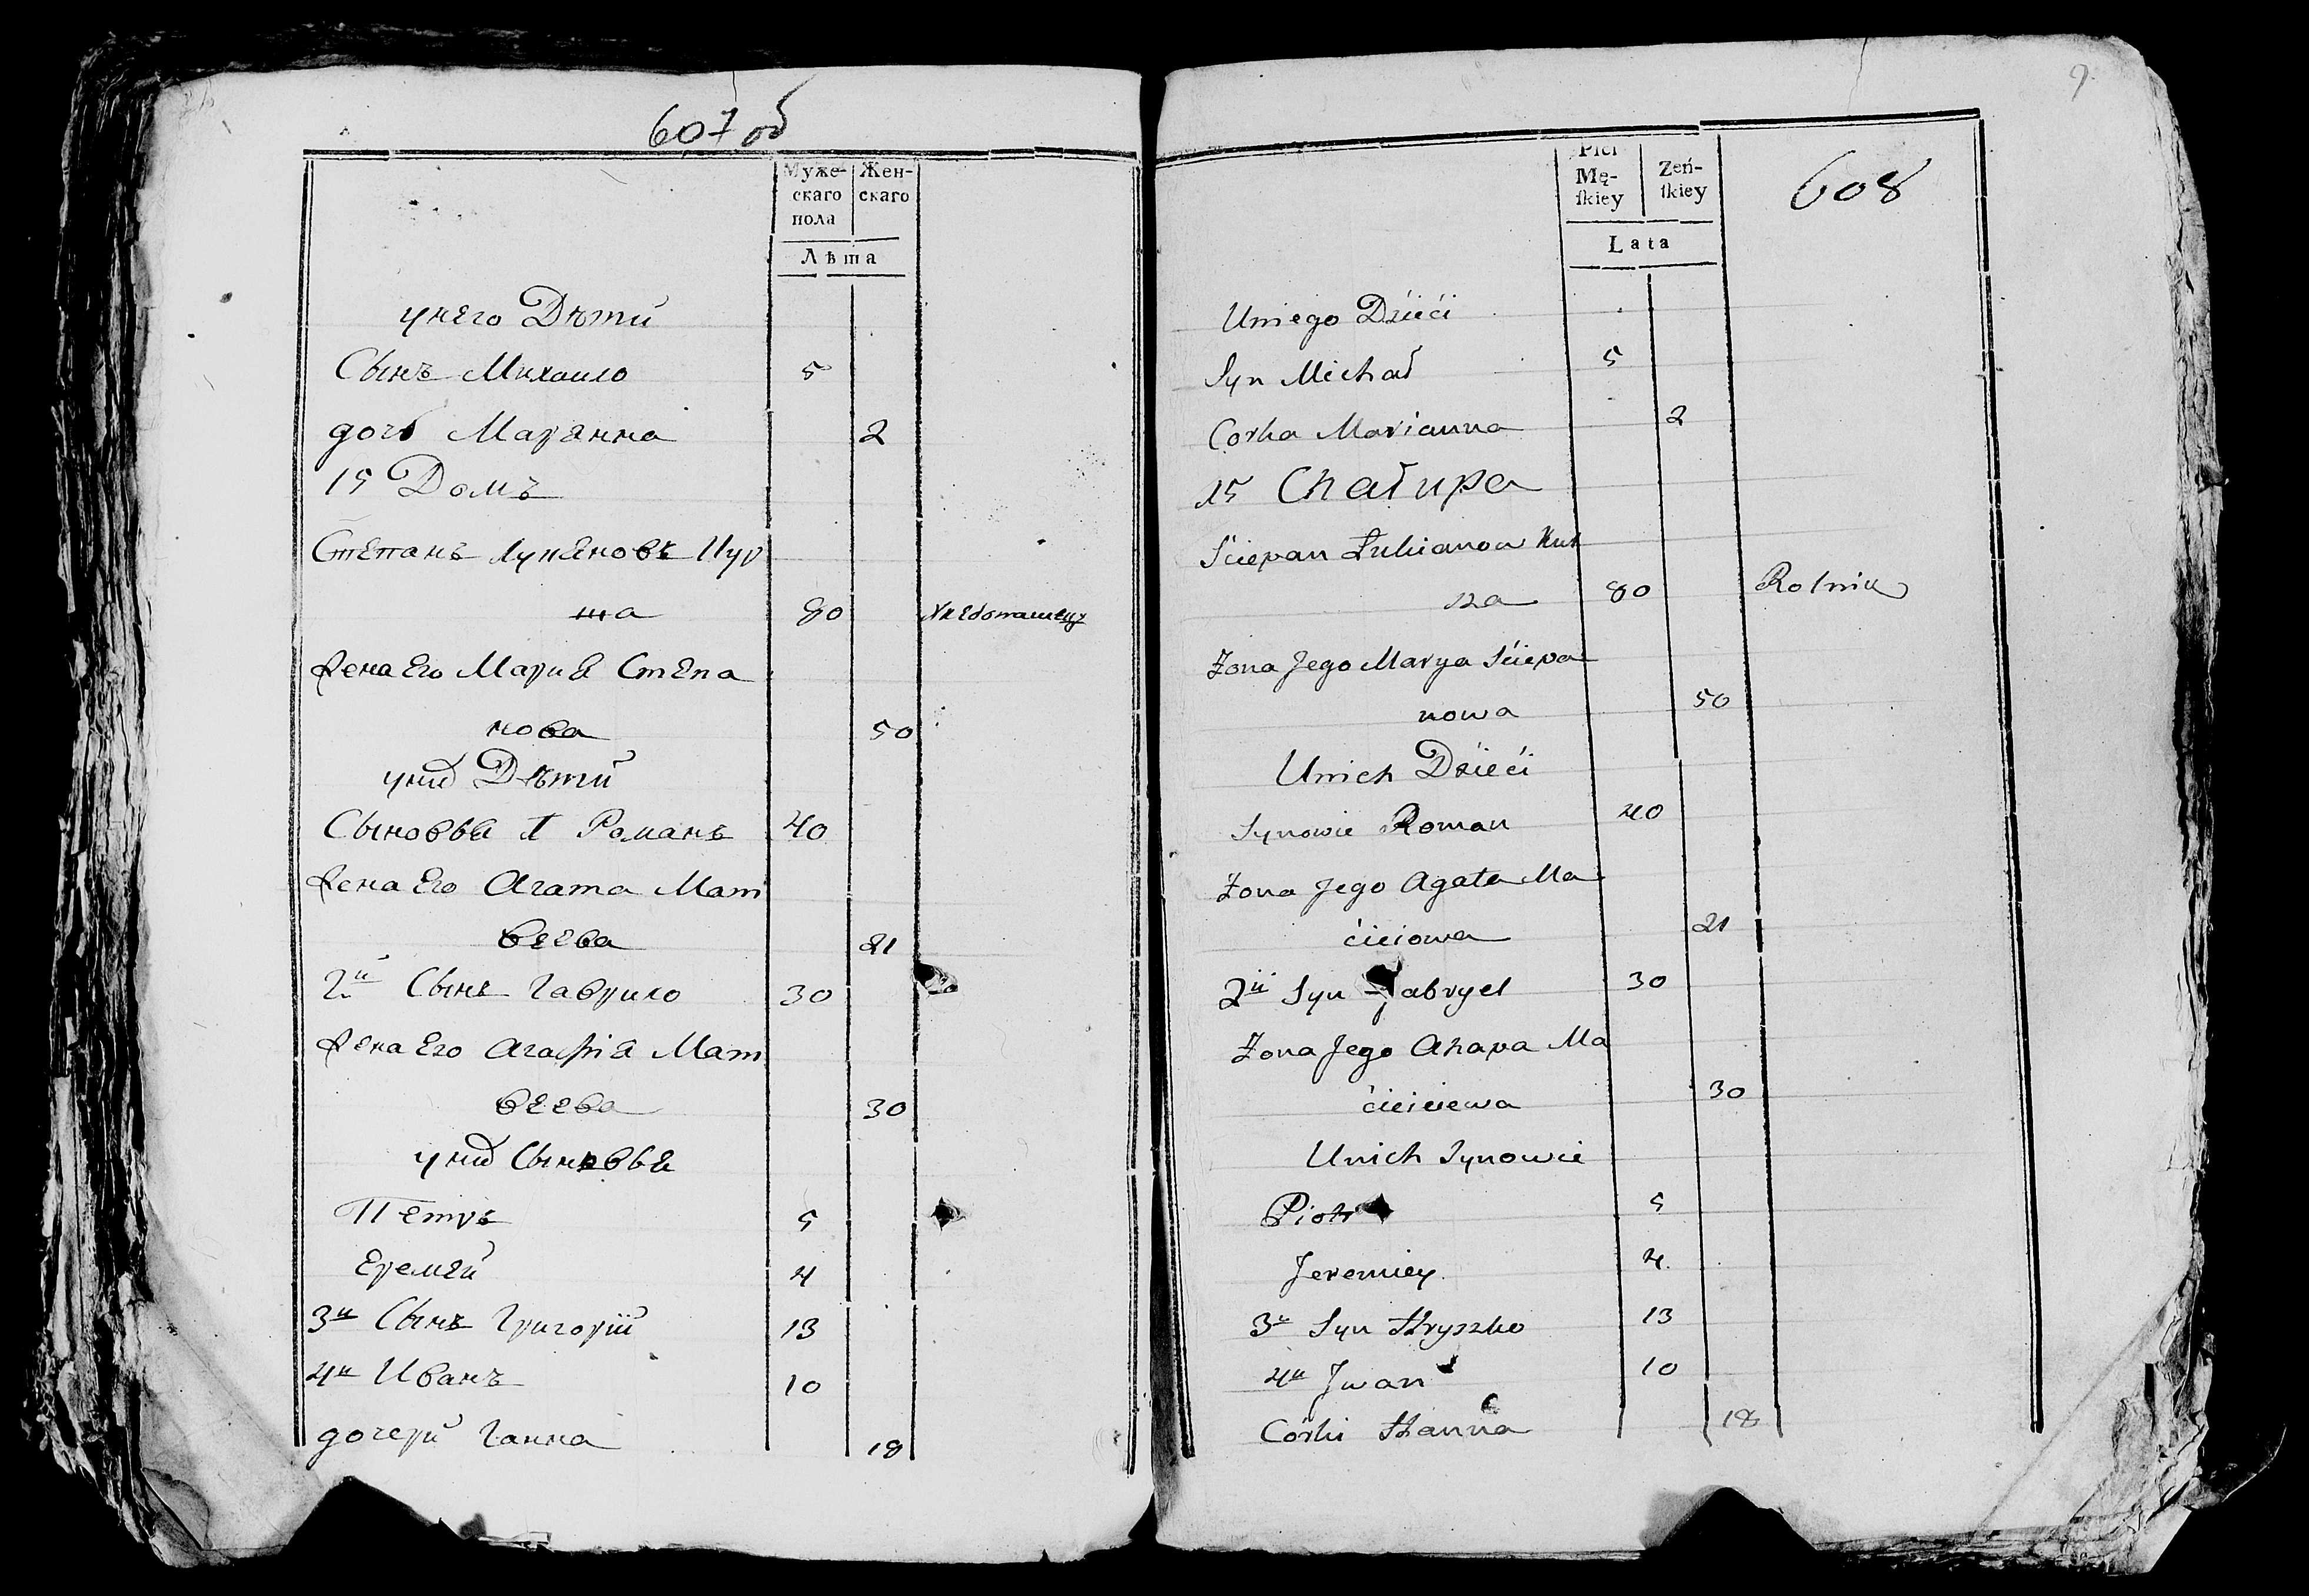 607 об
Муже-
скаго
пола
Жен-
скаго
Лѣта
у него Дѣти
Сынъ Михайло 5
дочь Марянна 2
15 Домъ
Степанъ Лукяновъ Кур
та 80
жена Его Мария Степа
нова 50
у них Дѣти
Сыновья 1 Романъ 40
жена Его Агата Мат
веева 21
2й Сынъ Гаврило 30
жена Его Агафія Мат
веева 30
у них Сыновья
Петръ 5
Еремей 4
3й Сынъ Григорій 13
4й Иванъ 10
дочери Ганна 18
9
608
Płci
Mę-
ſkiey
Zeń-
ſkiey
Lata
Uniego Dzieći
Syn Michał 5
Corka Marianna 2
15 Chałupa
Sciepan Łukianow
80 Rolnik
Zona Jego Marya Sciepa
nowa 50
Unich Dzieći
Synowie Roman 40
Zona Jego Agata Ma
ćiiowa 21
2ii Syn Gabryel 30
Zona Jego Ahapa Ma
ćieiciewa 30
Unich Synowie
Piotr 5
Jeremiey 4
3ii Syn Hryszko 13
4ii Jwan 10
Córki Hanna 18